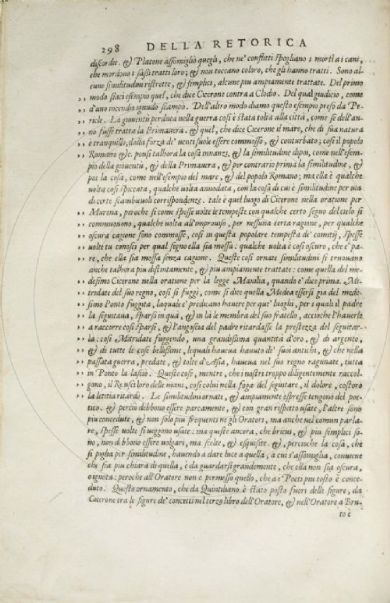 298 DELLA RETORICA
discordi. & Platone assomigliò quegli, che ne' conflitti spogliano i morti a i cani,
che mordono i sassi tratti loro; & non toccano coloro, che gli hanno tratti. Sono al-
cune similitudini ristrette, & semplici, alcune più ampiamente trattate. Del primo
modo siaci esempio quel, che dice Cicerone contra a Clodio. Del qual giudicio, come
d'uno incendio ignudo scampò. Dell'altro modo diamo questo esempio preso da Pe-
ricle. La gioventù perduta nella guerra così è stata tolta alla città, come se dell'an-
no fusse tratta la Primavera. & quel, che dice Cicerone il mare, che di sua natura
è tranquillo, dalla forza de' venti suole essere commosso, & conturbato; così il popolo
Romano &c. ponsi talhora la cosa innanzi, & la similitudine dopo, come nell'esem-
pio della gioventù, & della Primavera, & per contrario prima la similitudine, &
poi la cosa, come nell'esempio del mare, & del popolo Romano; ma ella è qualche
volta così spiccata, qualche volta annodata, con la cosa di cui è similitudine per via
di certe scambievoli corrispondenze. tale è quel luogo di Cicerone nella oratione per
Murena, perche si come spesse volte le tempeste con qualche certo segno del cielo si
commuovono, qualche volta all'improviso, per nessuna certa ragione, per qualche
oscura cagione sono commosse, così in questa popolare tempesta de' comitij, spesse
volte tu conosci per qual segno ella sia mossa: qualche volta è così oscuro, che e' pa-
re, che ella sia mossa senza cagione. Queste così ornate similitudini si truovano
anche talhora più distintamente, & più ampiamente trattate: come quella del me-
desimo Cicerone nella oratione per la legge Manilia, quando e' dice prima. Mi-
tridate del suo regno, così si fuggì, come si dice quella Medea essersi già del mede-
simo Ponto fuggita, laquale e' predicano havere per que' luoghi, per i quali il padre
la seguitava, sparsi in quà, & in là le membra del suo fratello, accioche l'haverle
a raccorre così sparse, & l'angoscia del padre ritardasse la prestezza del seguitar-
la. così Mitridate fuggendo, una grandissima quantità d'oro, & di argento,
& di tutte le cose bellissime, lequali haveva havute de' suoi antichi, & che nella
passata guerra, predate, & tolte d'Asia, haveva nel suo regno ragunate, tutta
in Ponto la lasciò. Queste così, mentre, che i nostri troppo diligentemente raccol-
gono, il Re uscì loro delle mani, così colui nella fuga del seguitare, il dolore, costoro
la letitia ritardò. Le similitudini ornate, & ampiamente espresse tengono del poe-
tico, & perciò debbono essere parcamente, & con gran rispetto usate, l'altre sono
più concedute, & non solo più frequenti ne gli Oratori, ma anche nel comun parla-
re, spesse volte si veggono usate: ma queste ancora, che brievi, & più semplici so-
no, non debbono essere volgari, ma scelte, & esquisite. &, percioche la cosa, che
si piglia per similitudine, havendo a dare luce a quella, a cui s'assomiglia, conviene
che sia più chiara di quella, è da guardarsi grandemente, che ella non sia oscura,
o ignota: peroche all'Oratore non è permesso quello, che a' Poeti più tosto è conce-
duto. Questo ornamento, che da Quintiliano è stato posto fuori delle figure, da
Cicerone tra le figure de' concetti nel terzo libro dell'Oratore, & nell'Oratore a Bru-
to è